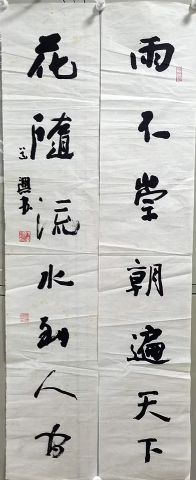 雨不崇朝遍天下
花隨流水到人間